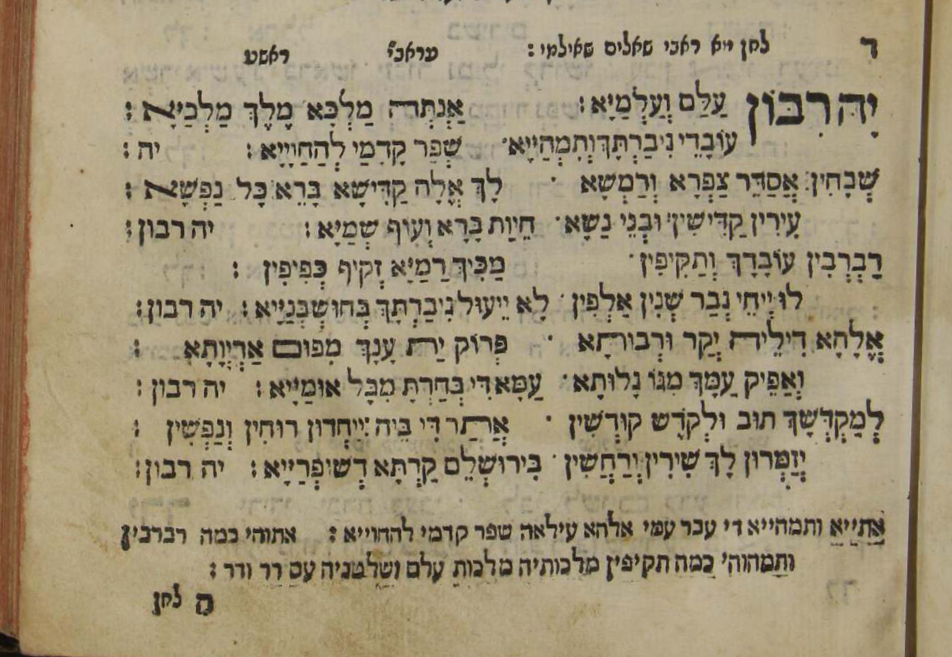 ד לחן ייא ראבי שאלים שאילמי: עראבי ראשע
יָהּ רִבּוֹן עַלַם וְעַלְמַיָא: אַנְתְּה מַלְכָּא מֶלֶךְ מַלְכַיָא:
עוֹבָדֵי גִיבַרְתָּךְ וְתִמְהַיָיא· שְׁפַר קָדָמַי לְהַחַוָיָיא: יה:
שְׁבָחִין אֲסַדֵּר צַפְרָא וְרַמְשָׁא · לָךְ אֱלָהּ קַדִישָׁא בָּרֵא כָּל נַפְשָׁא:
עִירִין קַדִּישִׁין וּבְנֵי נַשָׁא· חֵיוַת בָּרָא וְעוֹף שְׁמַיָא: יה רבון:
רַבְרְבִין עוֹבָדָךְ וְתַקִיפִין· מַכִּיךְ רַמַיָא זְקִיף כְּפִיפִין:
לוּ יְחֵי גְבַר שְׁנִין אַלְפִין· לָא יֵיעוּל גִיבַרְתָּךְ בְּחוּשְׁבְּנַיָיא: יה רבון:
אֱלָהָא דִילֵיה יְקַר וּרְבוּרתָא · פְּרוֹק יַת עָנָךְ מִפּוּם אַרְיְוָתָא
וְאַפֵּיק עַמָּךְ מִגּוֹ גָלוּתָא· עַמָּא דִי בְחַרְתְּ מִכָּל אוּמַיָיא: יה רבון:
לְמַקְדְּשָׁךְ תוּב וּלְקֹדֶשׁ קוּדְשִׁין · אֲתַר דִּי בֵיהּ יֵיחְדוּן רוּחִין וְנַפְשִׁין:
יְזַמְּרוּן לָךְ שִׁירִין וְרַחֲשִׁין · בִּירוּשְׁלֵם קַרְתָּא דְשׁוּפְרַיָיא: יה רבון:
אתייא ותמהייא די עבר עמי אלהא עילאה שפר קדמי להחוייא: אתוהי כמה רברבין
ותמהוהי כמה תקיפין מלכותיה מלכות עלם ושלטניה עם דר ודר:
ה לחן